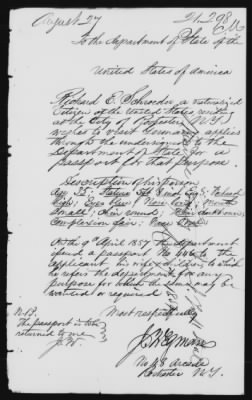 August 27
21,298
To the department of State of the
United States of America
Richard E. Schroeder, a naturalized
citizen of the United States residing
at the City of N.Y.
wishes to visit Germany applies
through the undersigned to the
department of State for a
passport for that purpose.
Description of his person
Age 25; Stature 5 feet 8 inch Eng;
high; Eyes Grey; Nose long; mouth
small; Chin round; Hair
Complexion fair; Face Oval.
On the 9th April 1857 the department
issued a passport No to the
applicant, his wife & children to which
he refers the department for any
purpose for which the same may be
wanted or required
Most respectfully
N.B.
The passport is to be
returned to me
J. W.
No 48 Arcade
Rochester N.Y.